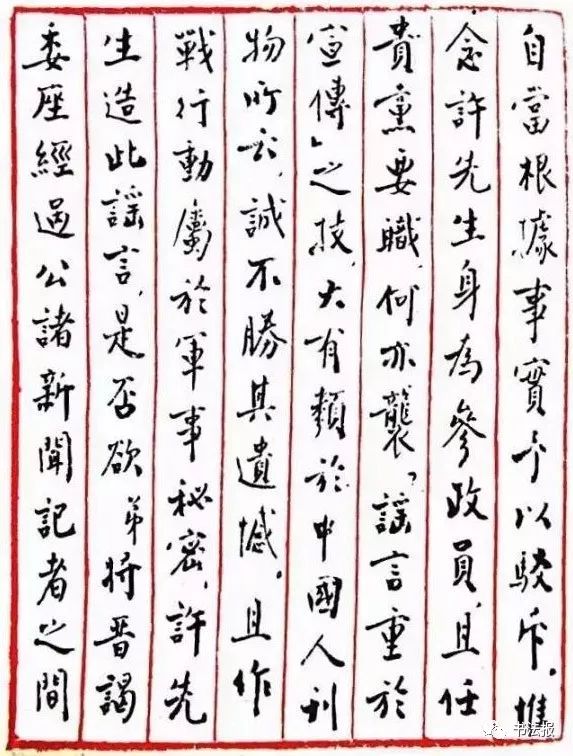 自當根據事實予以駁斥，惟
念許先生身為參政員，且任
貴黨要職，何亦襲「謠言重於
宣傳」之技，大有類於中國人刊
物所云，誠不勝其遺憾，且作
戰行動屬於軍事秘密，許先
生造此謠言，是否欲弟將晉謁
委座經過公諸新聞記者之間
书法报